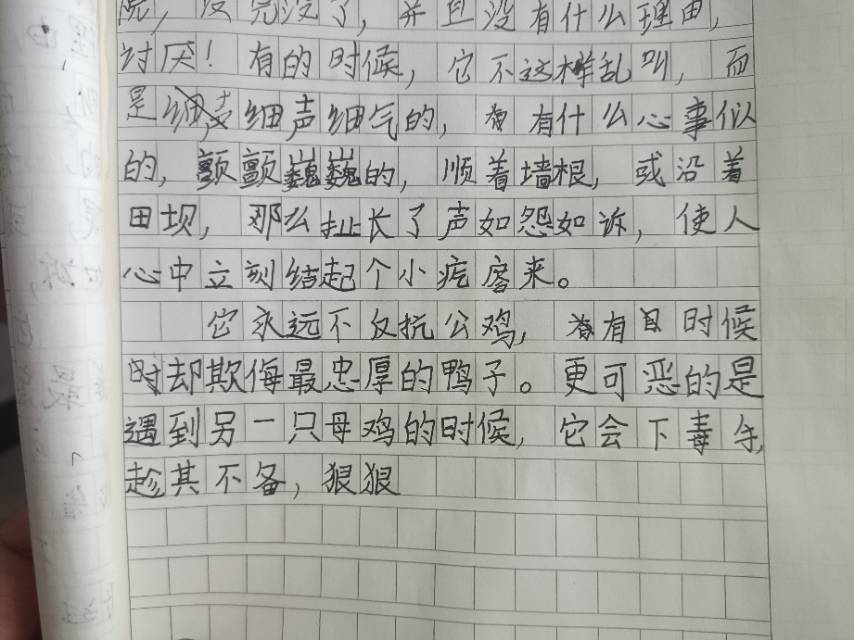 院，没完没了，并且没有什么理由，
讨厌！有的时候，它不这样乱叫，而
是细声细气的，有什么心事似
的，颤颤巍巍的，顺着墙根，或沿着
田坝，那么扯长了声如怨如诉，使人
心中立刻结起个小疙瘩来。
它永远不反抗公鸡，有时候
却欺侮最忠厚的鸭子。更可恶的是
遇到另一只母鸡的时候，它会下毒手，
趁其不备，狠狠